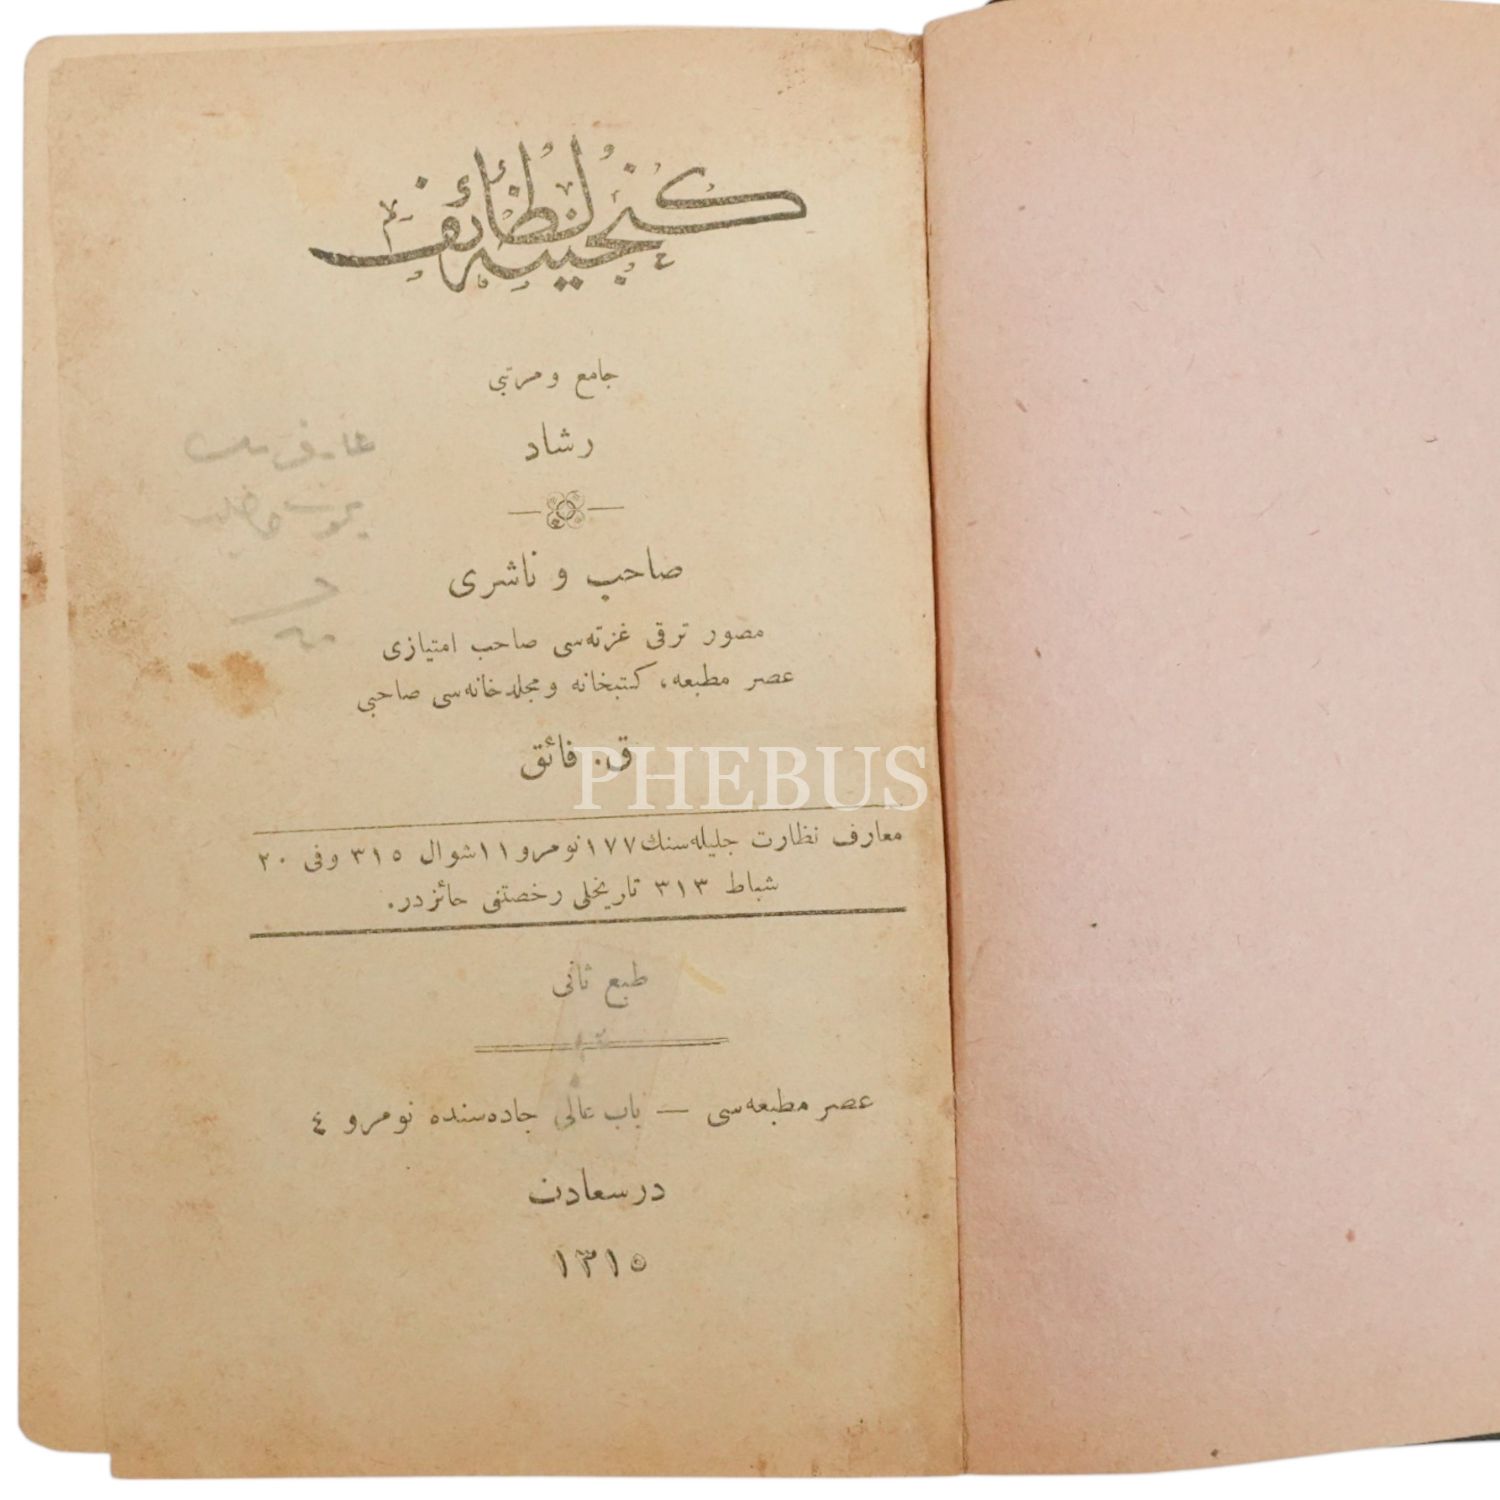 گنجینه لطائف
جامع و مرتبی
رشاد
صاحب و ناشری
مصور ترقی غزته‌سی صاحب امتیازی
عصر مطبعه، کتبخانه و مجلدخانه‌سی صاحبی
ق. فائق
PHEBUS
معارف نظارت جلیله‌سنك ۱۷۷ نومرو ۱۱ شوال ۳۱۵ وفی ۲۰
شباط ۳۱۳ تاریخلی رخصتنی حائزدر.
طبع ثانی
عصر مطبعه‌سی — باب عالی جاده‌سنده نومرو ٤
درسعادت
۱۳۱۵